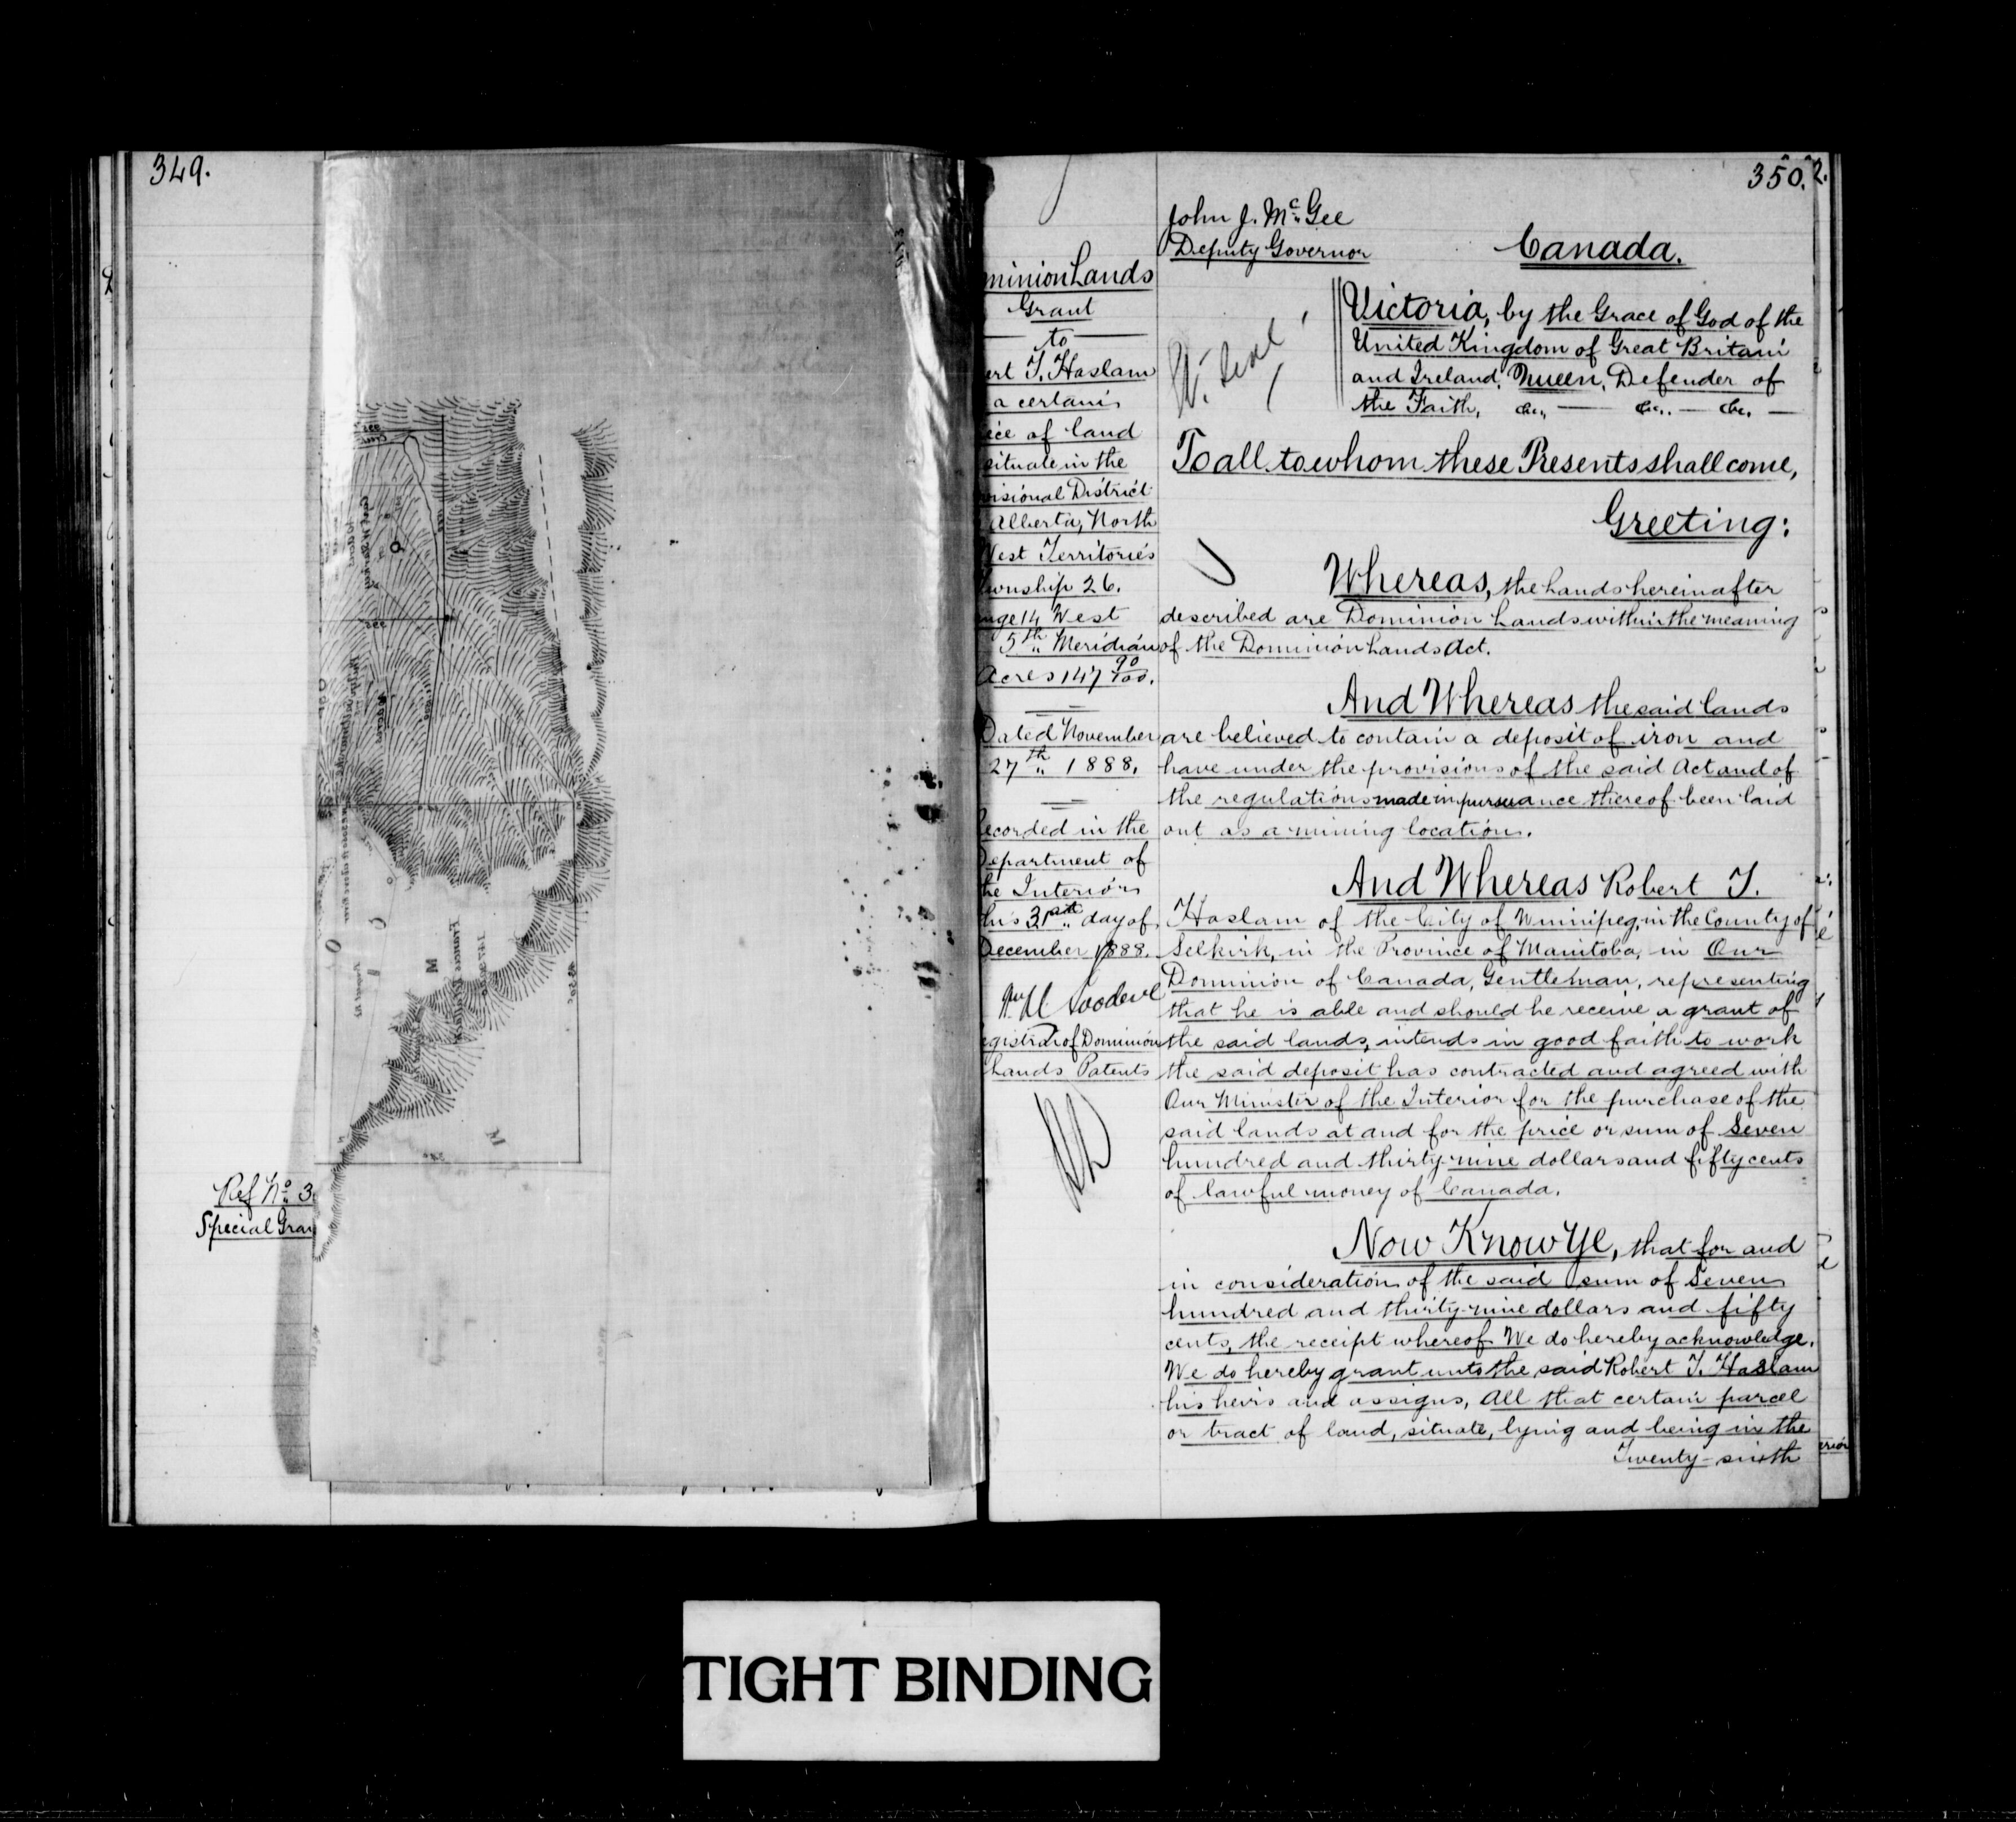 349.
Ref No. 3
Special Gran
350.
John J. McGee
Deputy Governor
Canada.
minion Lands
Grant
to
ert T. Haslam
a certain
iece of land
situate in the
ovisional District
Alberta, North
West Territories
ownship 26.
nge 14 West
5th Meridian
Acres 147 90/100.
Dated November
27th 1888.
ecorded in the
Department of
he Interior
this 31st day of
December 1888.
egistrar of Dominion
Lands Patents
Victoria, by the Grace of God of the
United Kingdom of Great Britain
and Ireland, Queen, Defender of
the Faith, &c., — &c.. — &c. —
To all to whom these Presents shall come,
Greeting:
Whereas, the Lands hereinafter
described are Dominion Lands within the meaning
of the Dominion Lands Act.
And Whereas the said lands
are believed to contain a deposit of iron and
have under the provisions of the said Act and of
the regulations made in pursuance thereof been laid
out as a mining location.
And Whereas Robert T.
Haslam of the City of Winnipeg, in the County of
Selkirk, in the Province of Manitoba, in Our
Dominion of Canada, Gentleman, representing
that he is able and should he receive a grant of
the said lands, intends in good faith to work
the said deposit has contracted and agreed with
Our Minister of the Interior for the purchase of the
said lands at and for the price or sum of Seven
hundred and thirty-nine dollars and fifty cents
of lawful money of Canada.
Now Know Ye, that for and
in consideration of the said sum of Seven
hundred and thirty-nine dollars and fifty
cents, the receipt whereof We do hereby acknowledge.
We do hereby grant unto the said Robert T. Haslam
his heirs and assigns, All that certain parcel
or tract of land, situate, lying and being in the
Twenty-sixth
TIGHT BINDING